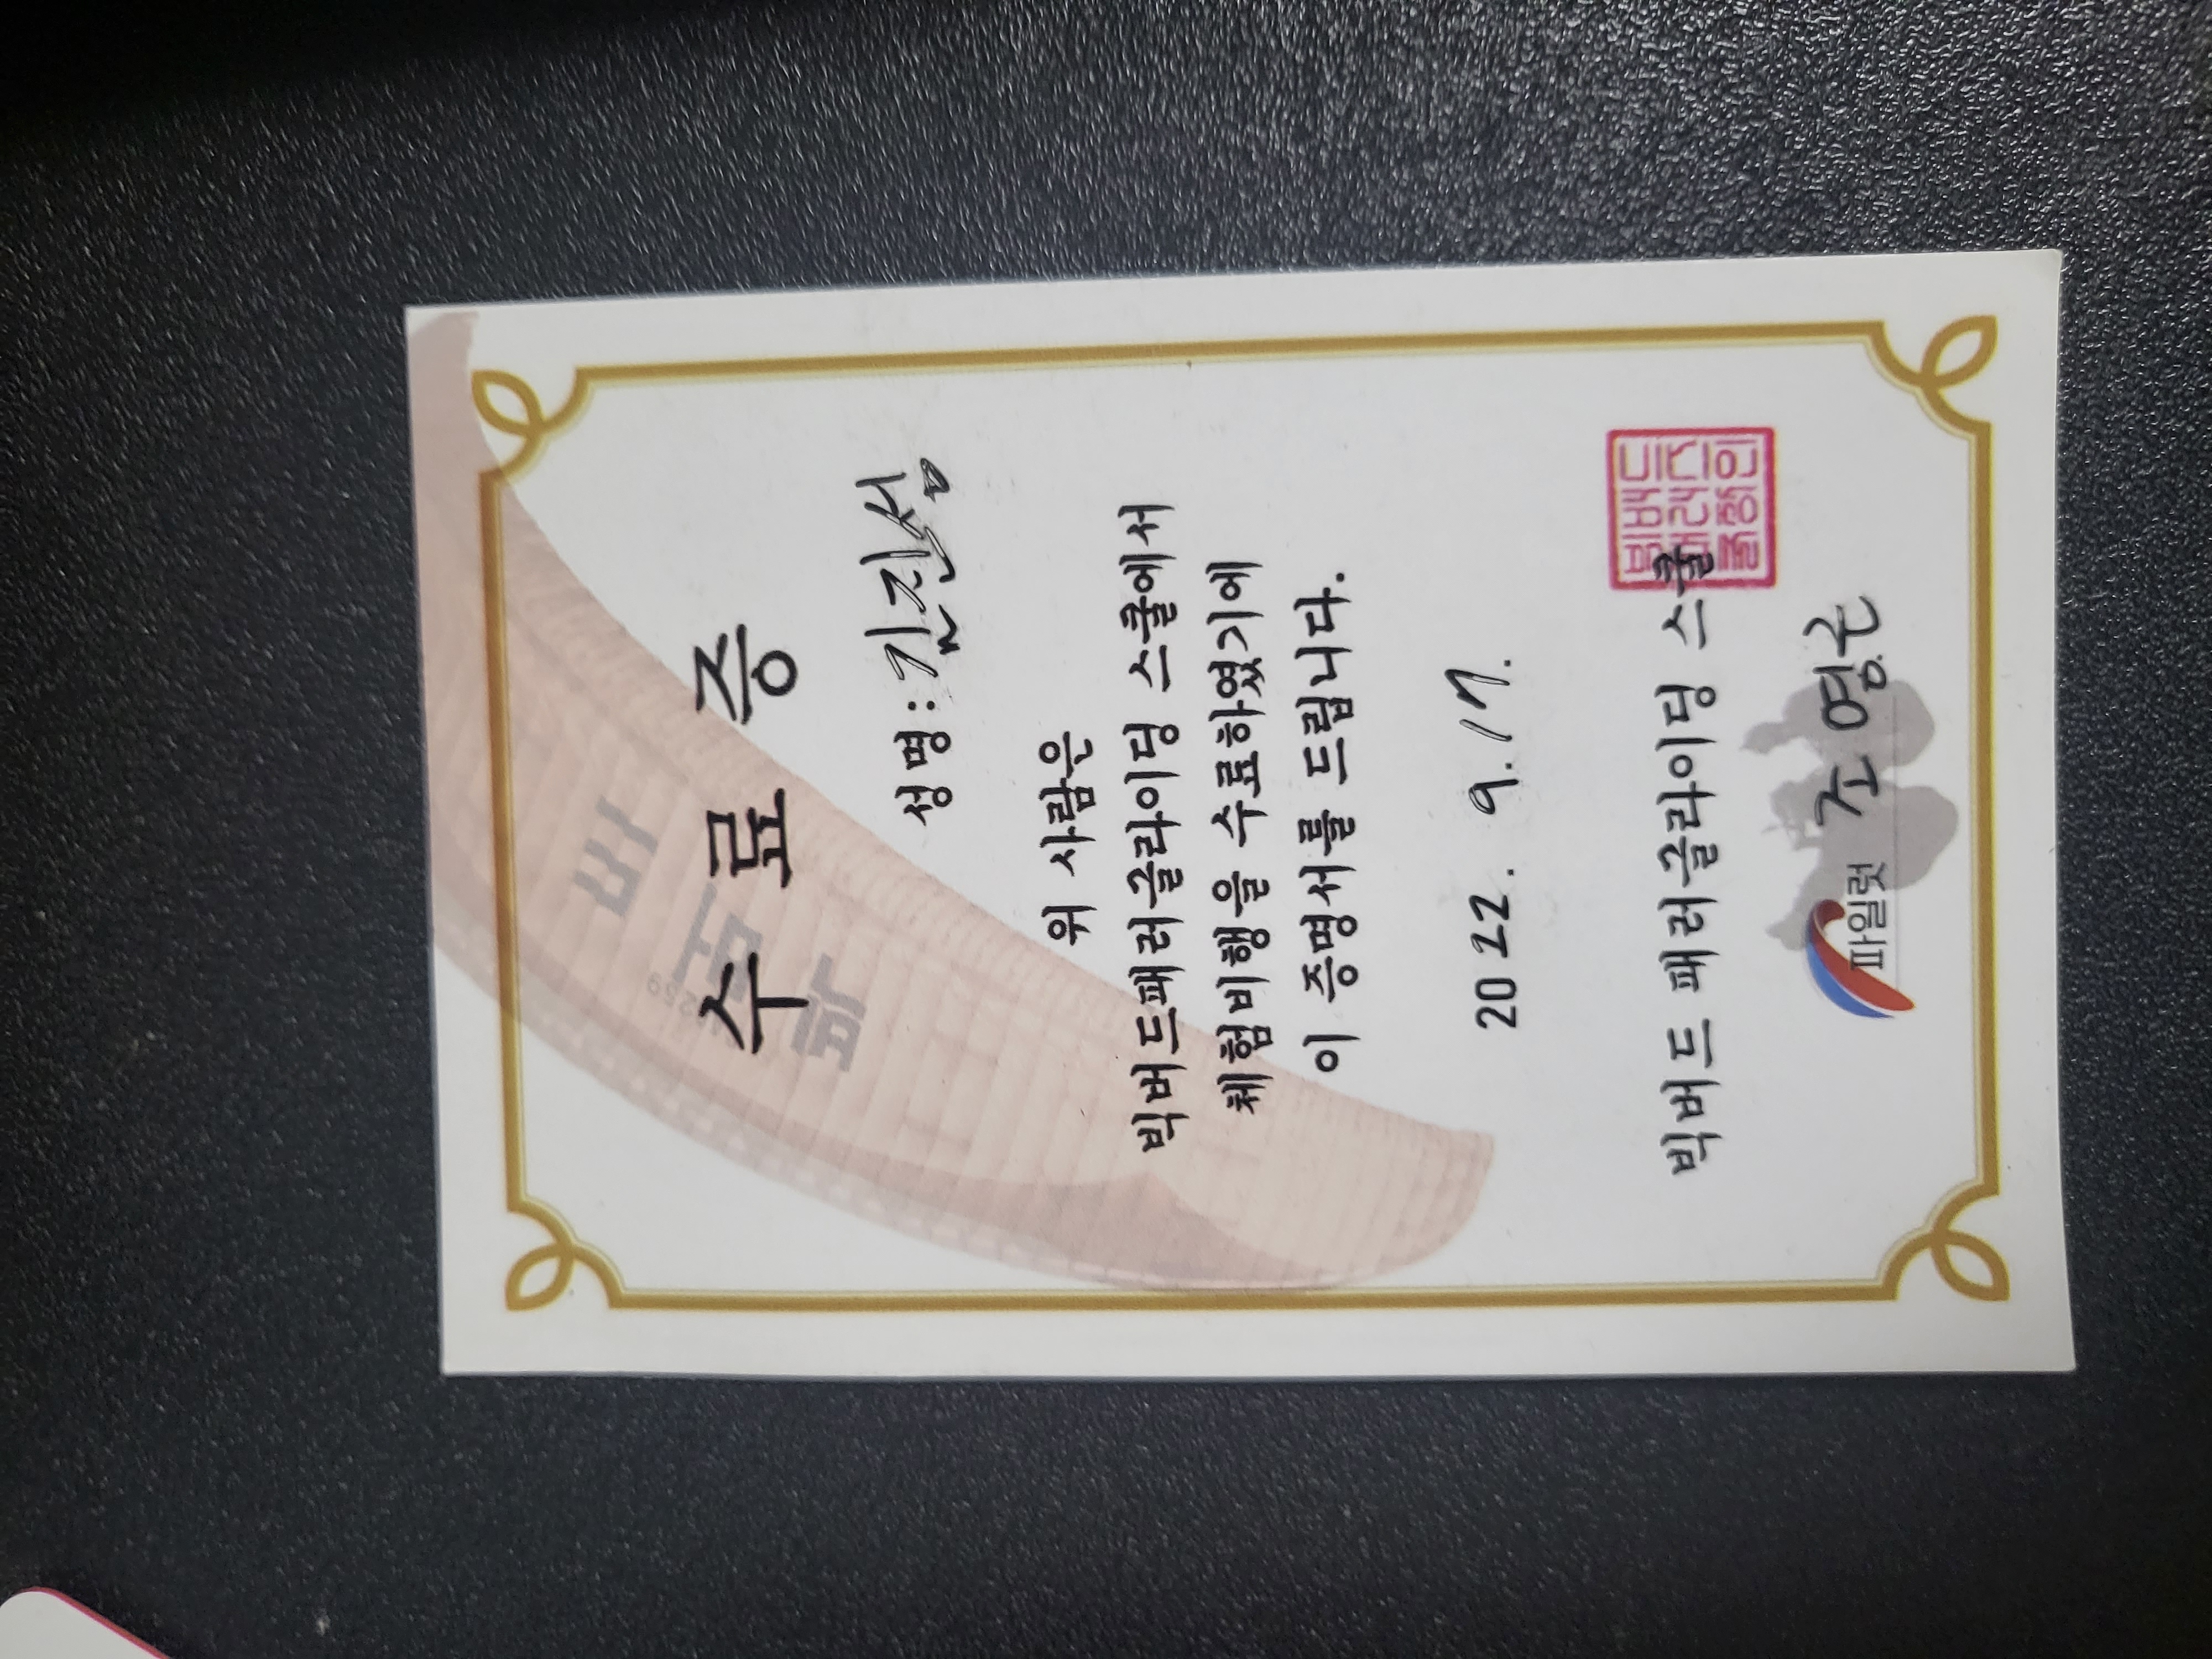 빅버드
수 료 증
성명: 김진섭
위 사람은
빅버드패러글라이딩 스쿨에서
체험비행을 수료하였기에
이 증명서를 드립니다.
2022. 9. 17.
빅버드 패러글라이딩 스쿨
파일럿 조영근